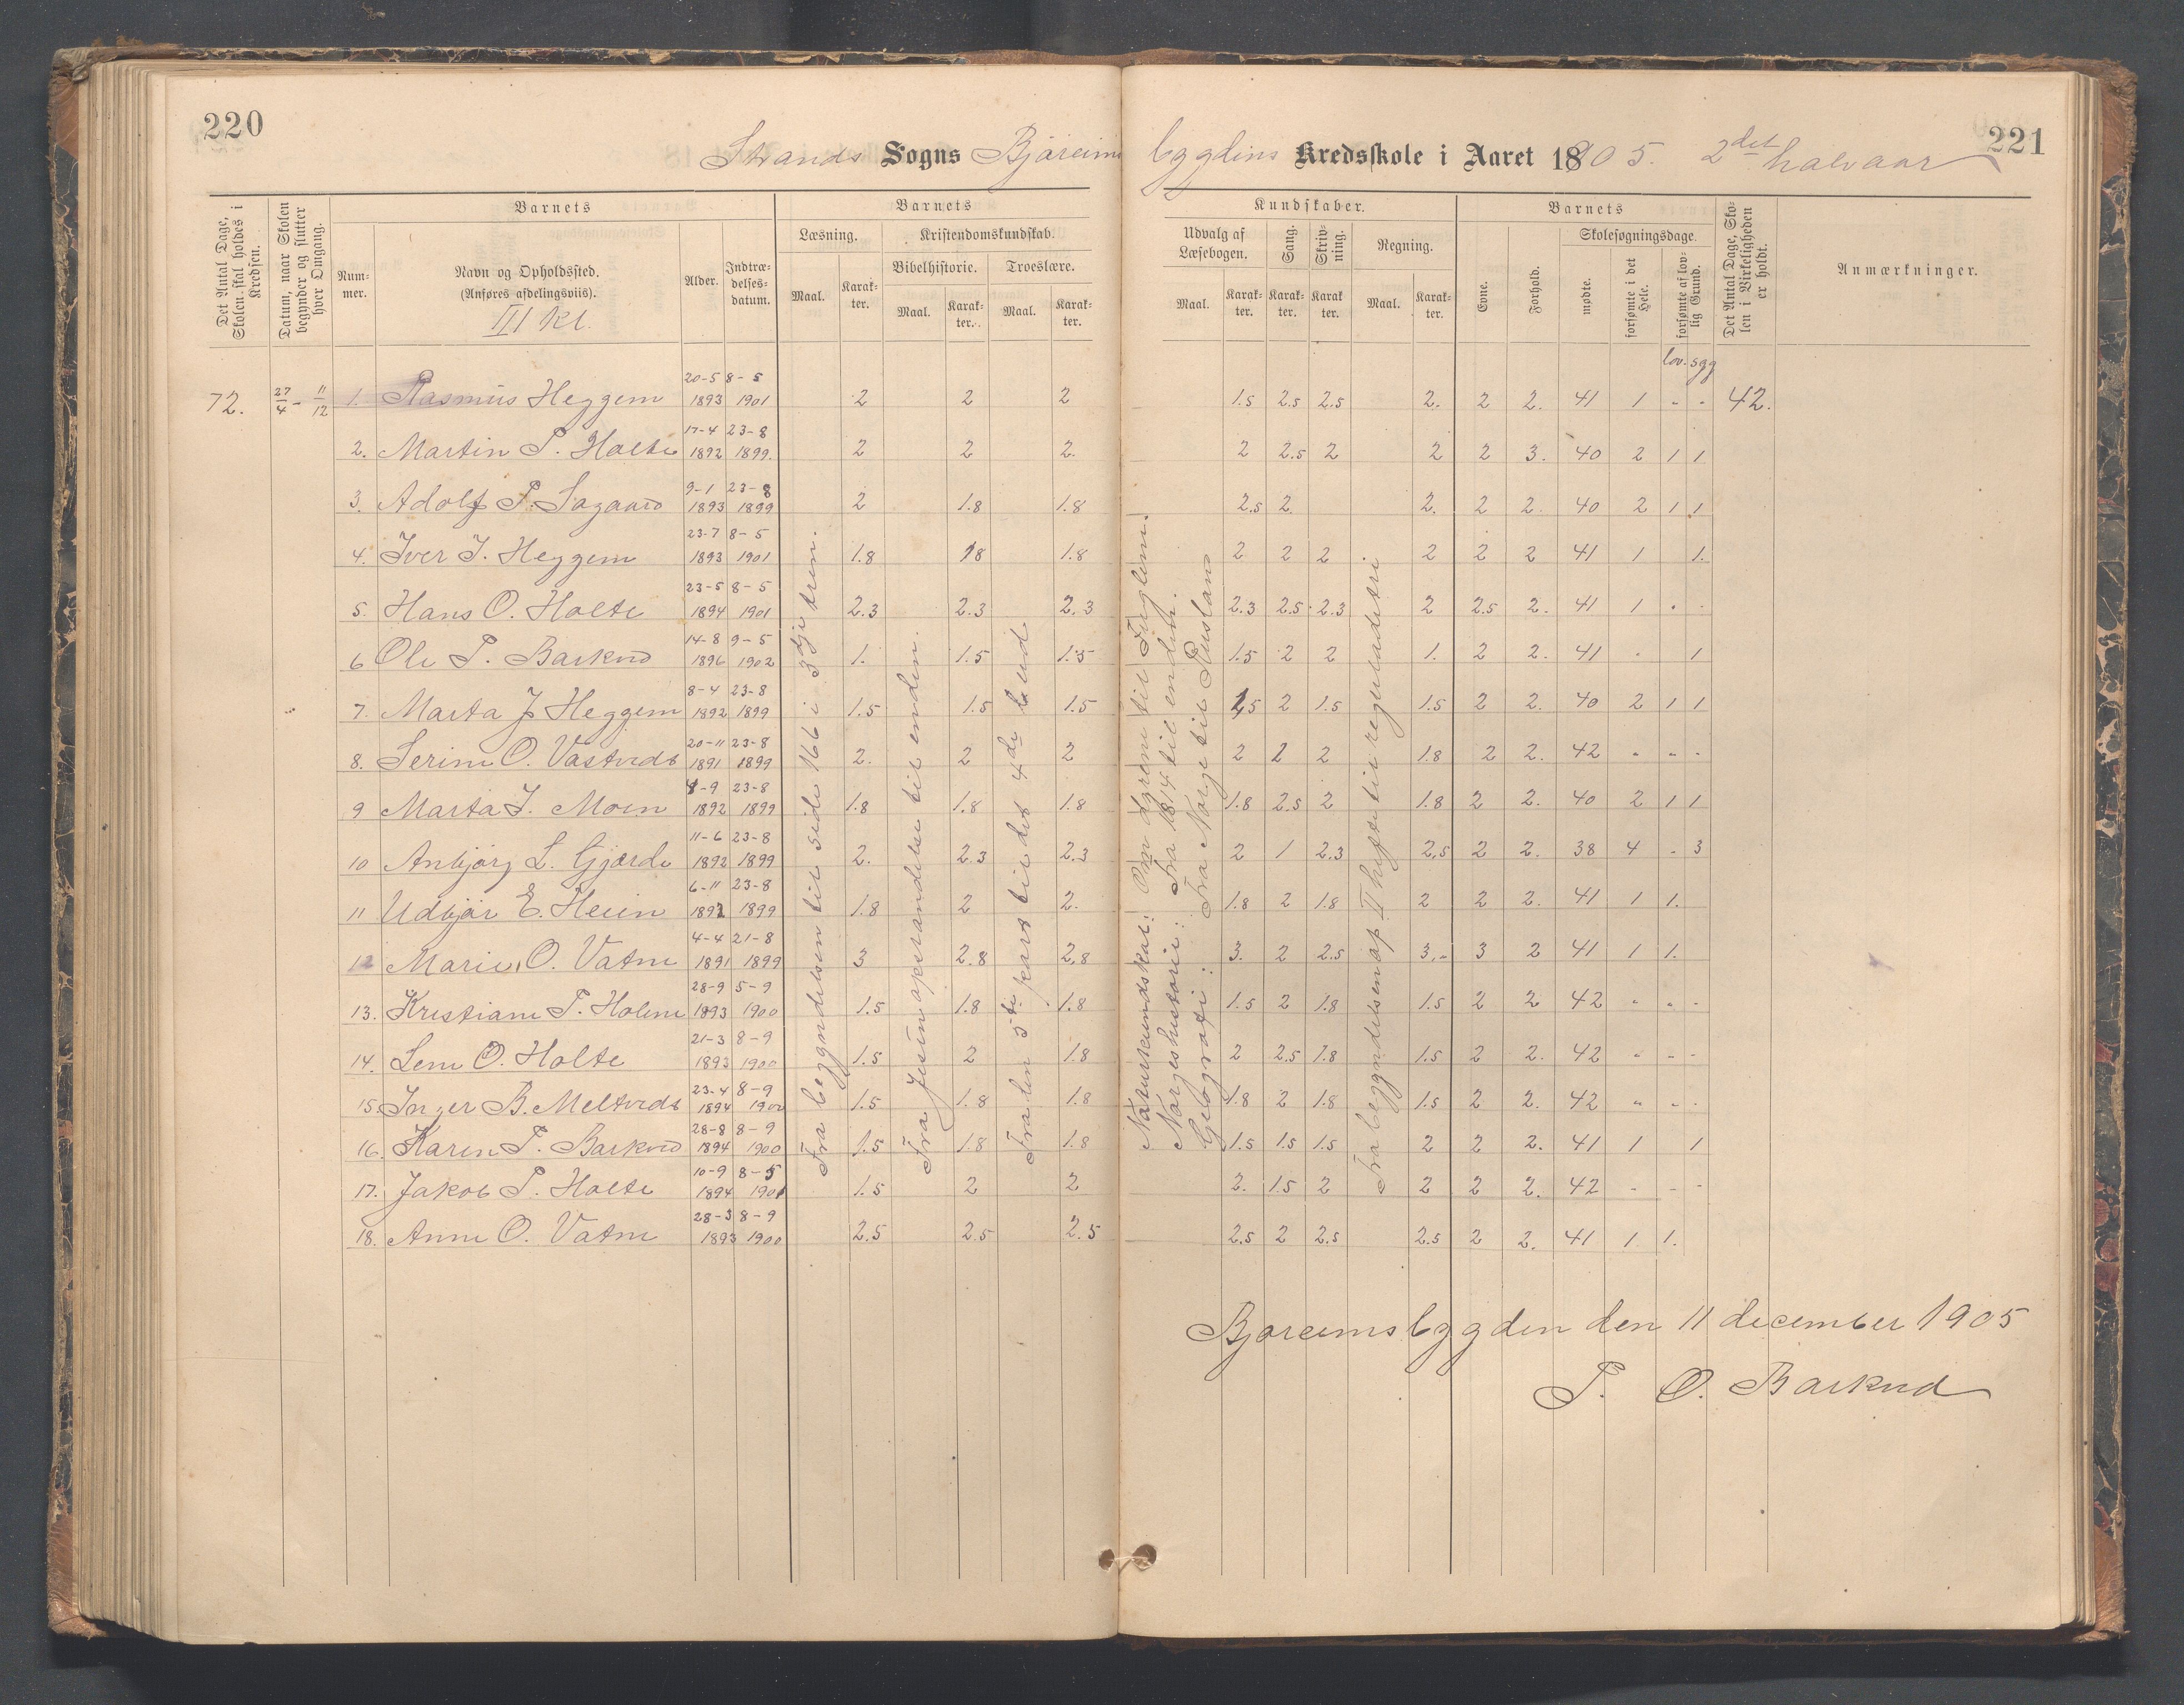 220
221
Strands Sogns Bjøreims bygdens Kredsskole i Aaret 1905. 2det halvaar
Det Antal Dage, Skolen skal holdes i Kredsen.
Datum, naar Skolen begynder og slutter hver Omgang.
Barnets
Nummer.
Navn og Opholdssted.
(Anføres afdelingsviis).
III Kl.
Alder.
Indtrædelsesdatum.
Barnets
Læsning.
Maal.
Karakter.
Kristendomskundskab.
Bibelhistorie.
Maal.
Karakter.
Troeslære.
Maal.
Karakter.
Kundskaber.
Udvalg af Læsebogen.
Maal.
Karakter.
Sang.
Karakter.
Skrivning.
Karakter.
Regning.
Maal.
Karakter.
Barnets
Evne.
Forhold.
Skolesøgningsdage.
mødte.
forsømte i det Hele.
forsømte af lovlig Grund.
lov. sgg
Det Antal Dage, Skolen i Virkeligheden er holdt.
Anmærkninger.
72. 27/4 - 11/12 1. Rasmus Heggem 20-5 1893 8-5 1901 2 2 2 1.5 2.5 2.5 2. 2 2. 41 1 - - 42.
2. Martin P. Holte 17-4 1892 23-8 1899. 2 2 2. 2 2.5 2 2 2 3. 40 2 1 1
3. Adolf P. Sagaard 9-1 1893 23-8 1899 2 1.8 1.8 2.5 2. 2. 2 2. 40 2 1 1
4. Iver J. Heggem 23-7 1893 8-5 1901 1.8 1.8 1.8 2 2 2 2 2 2 41 1 1.
5. Hans O. Holte 23-5 1894 8-5 1901 2.3 2.3 2.3 2.3 2.5 2.3 2 2.5 2. 41 1 - -
6 Ole P. Barkved 14-8 1896 9-5 1902 1. 1.5 1.5 1.5 2 2 1. 2 2. 41 - 1
7. Marta J. Heggem 8-4 1892 23-8 1899 1.5 1.5 1.5 1.5 2 1.5 1.5 2 2. 40 2 1 1
8. Serine O. Vastveds 20-11 1891 23-8 1899 2. 2 2 2 2 2 1.8 2 2. 42 - - -
9 Marta J. Moen 4-9 1892 23-8 1899 1.8 1.8 1.8 1.8 2.5 2 1.8 2 2. 40 2 1 1
10 Anbjørg L. Gjærde 11-6 1892 23-8 1899 2. 2.3 2.3 2 1 2.3 2.5 2 2. 38 4 - 3
11 Udbjør E. Heien 6-11 1892 23-8 1899 1.8 2 2. 1.8 2 1.8 2 2 2. 41 1 1.
12 Marie O. Vatne 4-4 1891 21-8 1899 3 2.8 2.8 3. 2 2.5 3.- 3 2 41 1 1.
13. Kristiane P. Holme 28-9 1893 5-9 1900 1.5 1.8 1.8 1.5 2 1.8 1.5 2 2 42 - - -
14. Lene O. Holte 21-3 1893 8-9 1900 1.5 2 1.8 2 2.5 1.8 1.5 2 2. 42 - - -
15. Inger B. Meltveds 23-4 1894 8-9 1900 1.5 1.8 1.8 1.8 2 1.8 1.5 2 2. 42 - - -
16. Karen P. Barkved 28-8 1894 8-9 1900 1.5 1.8 1.8 1.5 1.5 1.5 2 2 2. 41 1 1
17. Jakob P. Holte 10-9 1894 8-5 1901 1.5 2 2 2. 1.5 2 2 2 2. 42 - - -
18. Anne O. Vatne 28-3 1893 8-9 1900 2.5 2.5 2.5 2.5 2 2.5 2.5 2 2. 41 1 1.
Fra begyndelsen til side 166 i 3dje tren.
Fra Jesu opstandelse til enden.
Fra den 5te part til det 4de bud.
Naturkundskab: Om dyrene til Fuglene.
Norgeshistorie: Fra 1814 til enden.
Geografi: Fra Norge til Rusland
Fra begyndelsen af II hefte til reguladetri
Bjøreimsbygden den 11 december 1905
P. O. Barkved